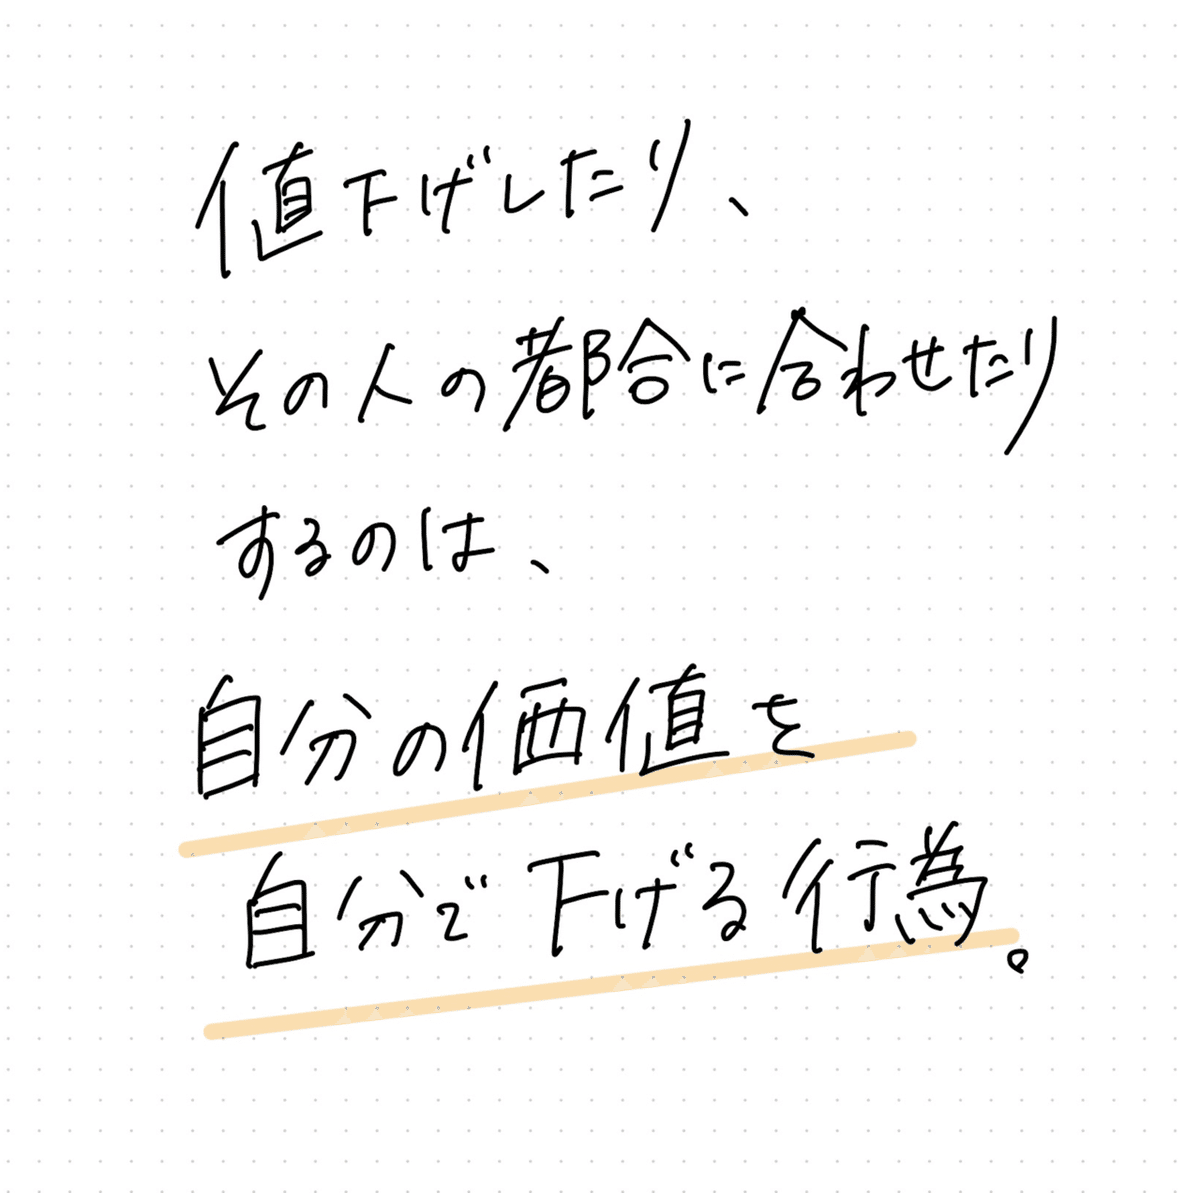 値下げしたり、
その人の都合に合わせたり
するのは、
自分の価値を
自分で下げる行為。